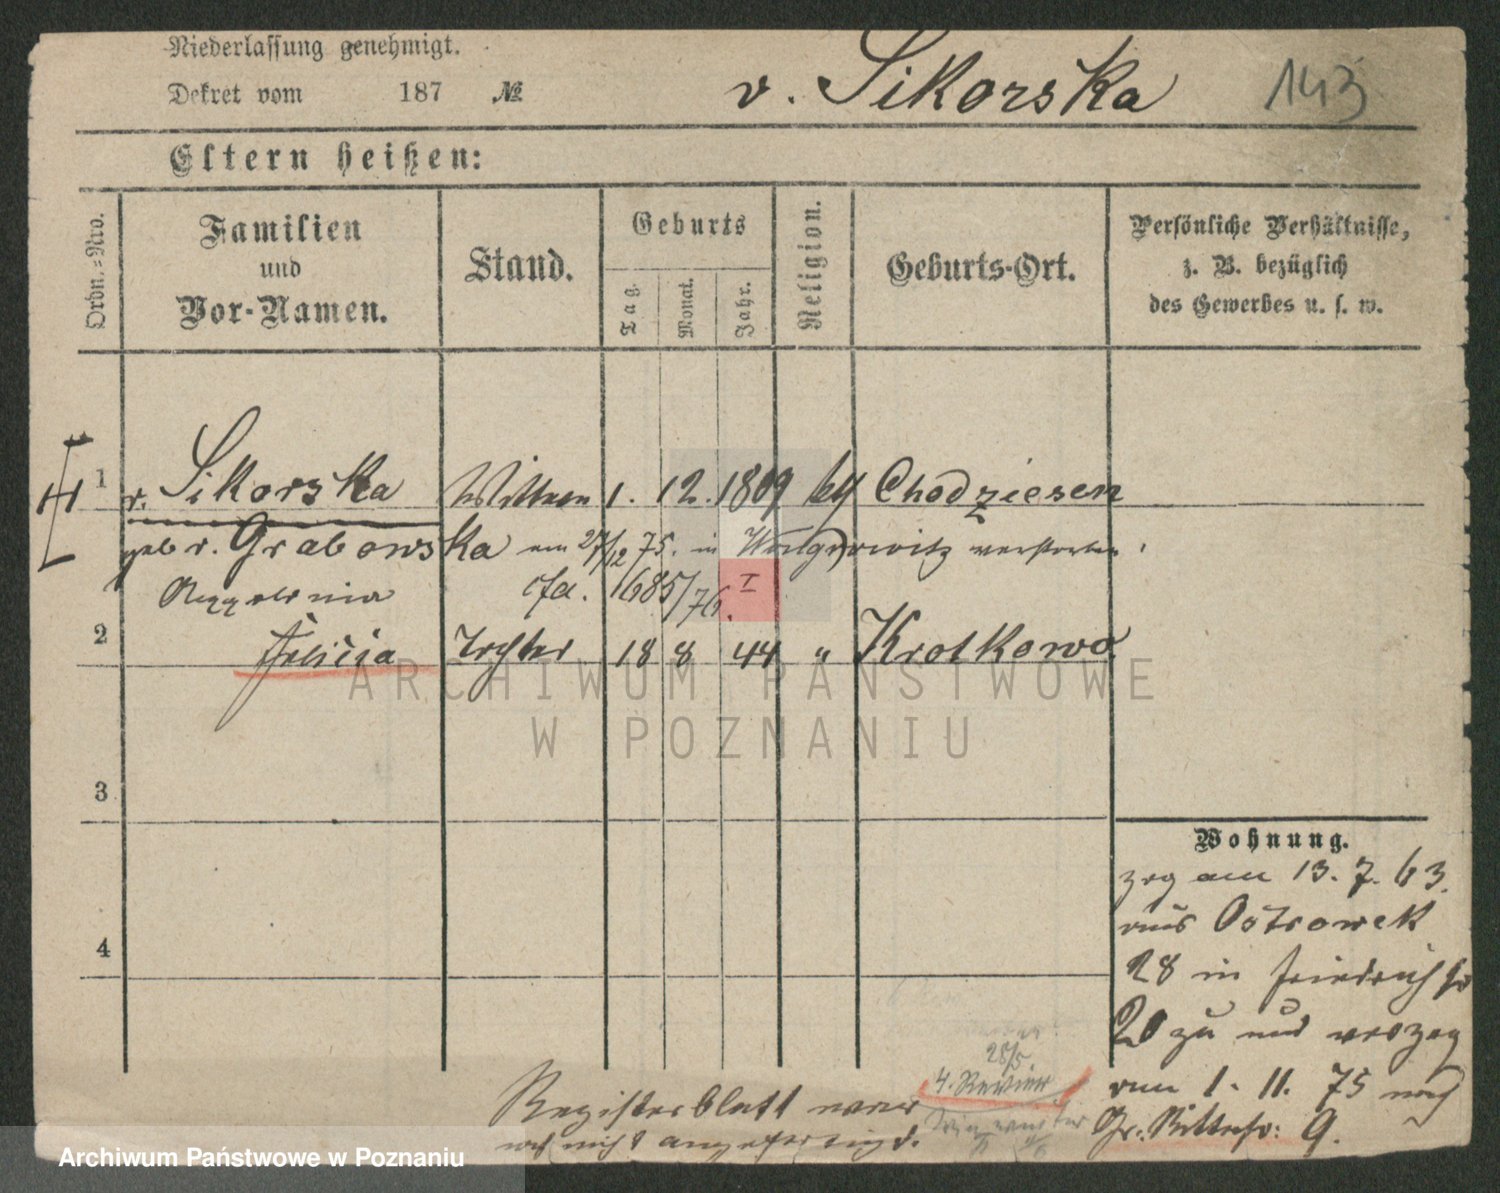 Niederlassung genehmigt.
Dekret vom 187 №
v. Sikorska 143
Eltern heißen:
Ordn.=Nro.
Familien
und
Vor-Namen.
Stand.
Geburts
Tag.
Monat.
Jahr.
Religion.
Geburts-Ort.
Persönliche Verhältnisse,
z. B. bezüglich
des Gewerbes u. s. w.
1 v. Sikorska Wittwe 1. 12. 1809 kth Chodziesen
geb v. Grabowska am 27/12 75. in verstorben.
1685/76. I
2 Felicia Tochter 18 8 44 " Krotkowo
ARCHIWUM PAŃSTWOWE
W POZNANIU
3
Wohnung.
zog am 13. 7. 63.
aus Ostrowek
4
28 in Friedrichstr
20 zu und verzog
28/5
4. Revier
am 1. 11. 75 nach
Registerblatt war
Gr. Ritterstr: 9.
noch nicht angefertigt.
Archiwum Państwowe w Poznaniu